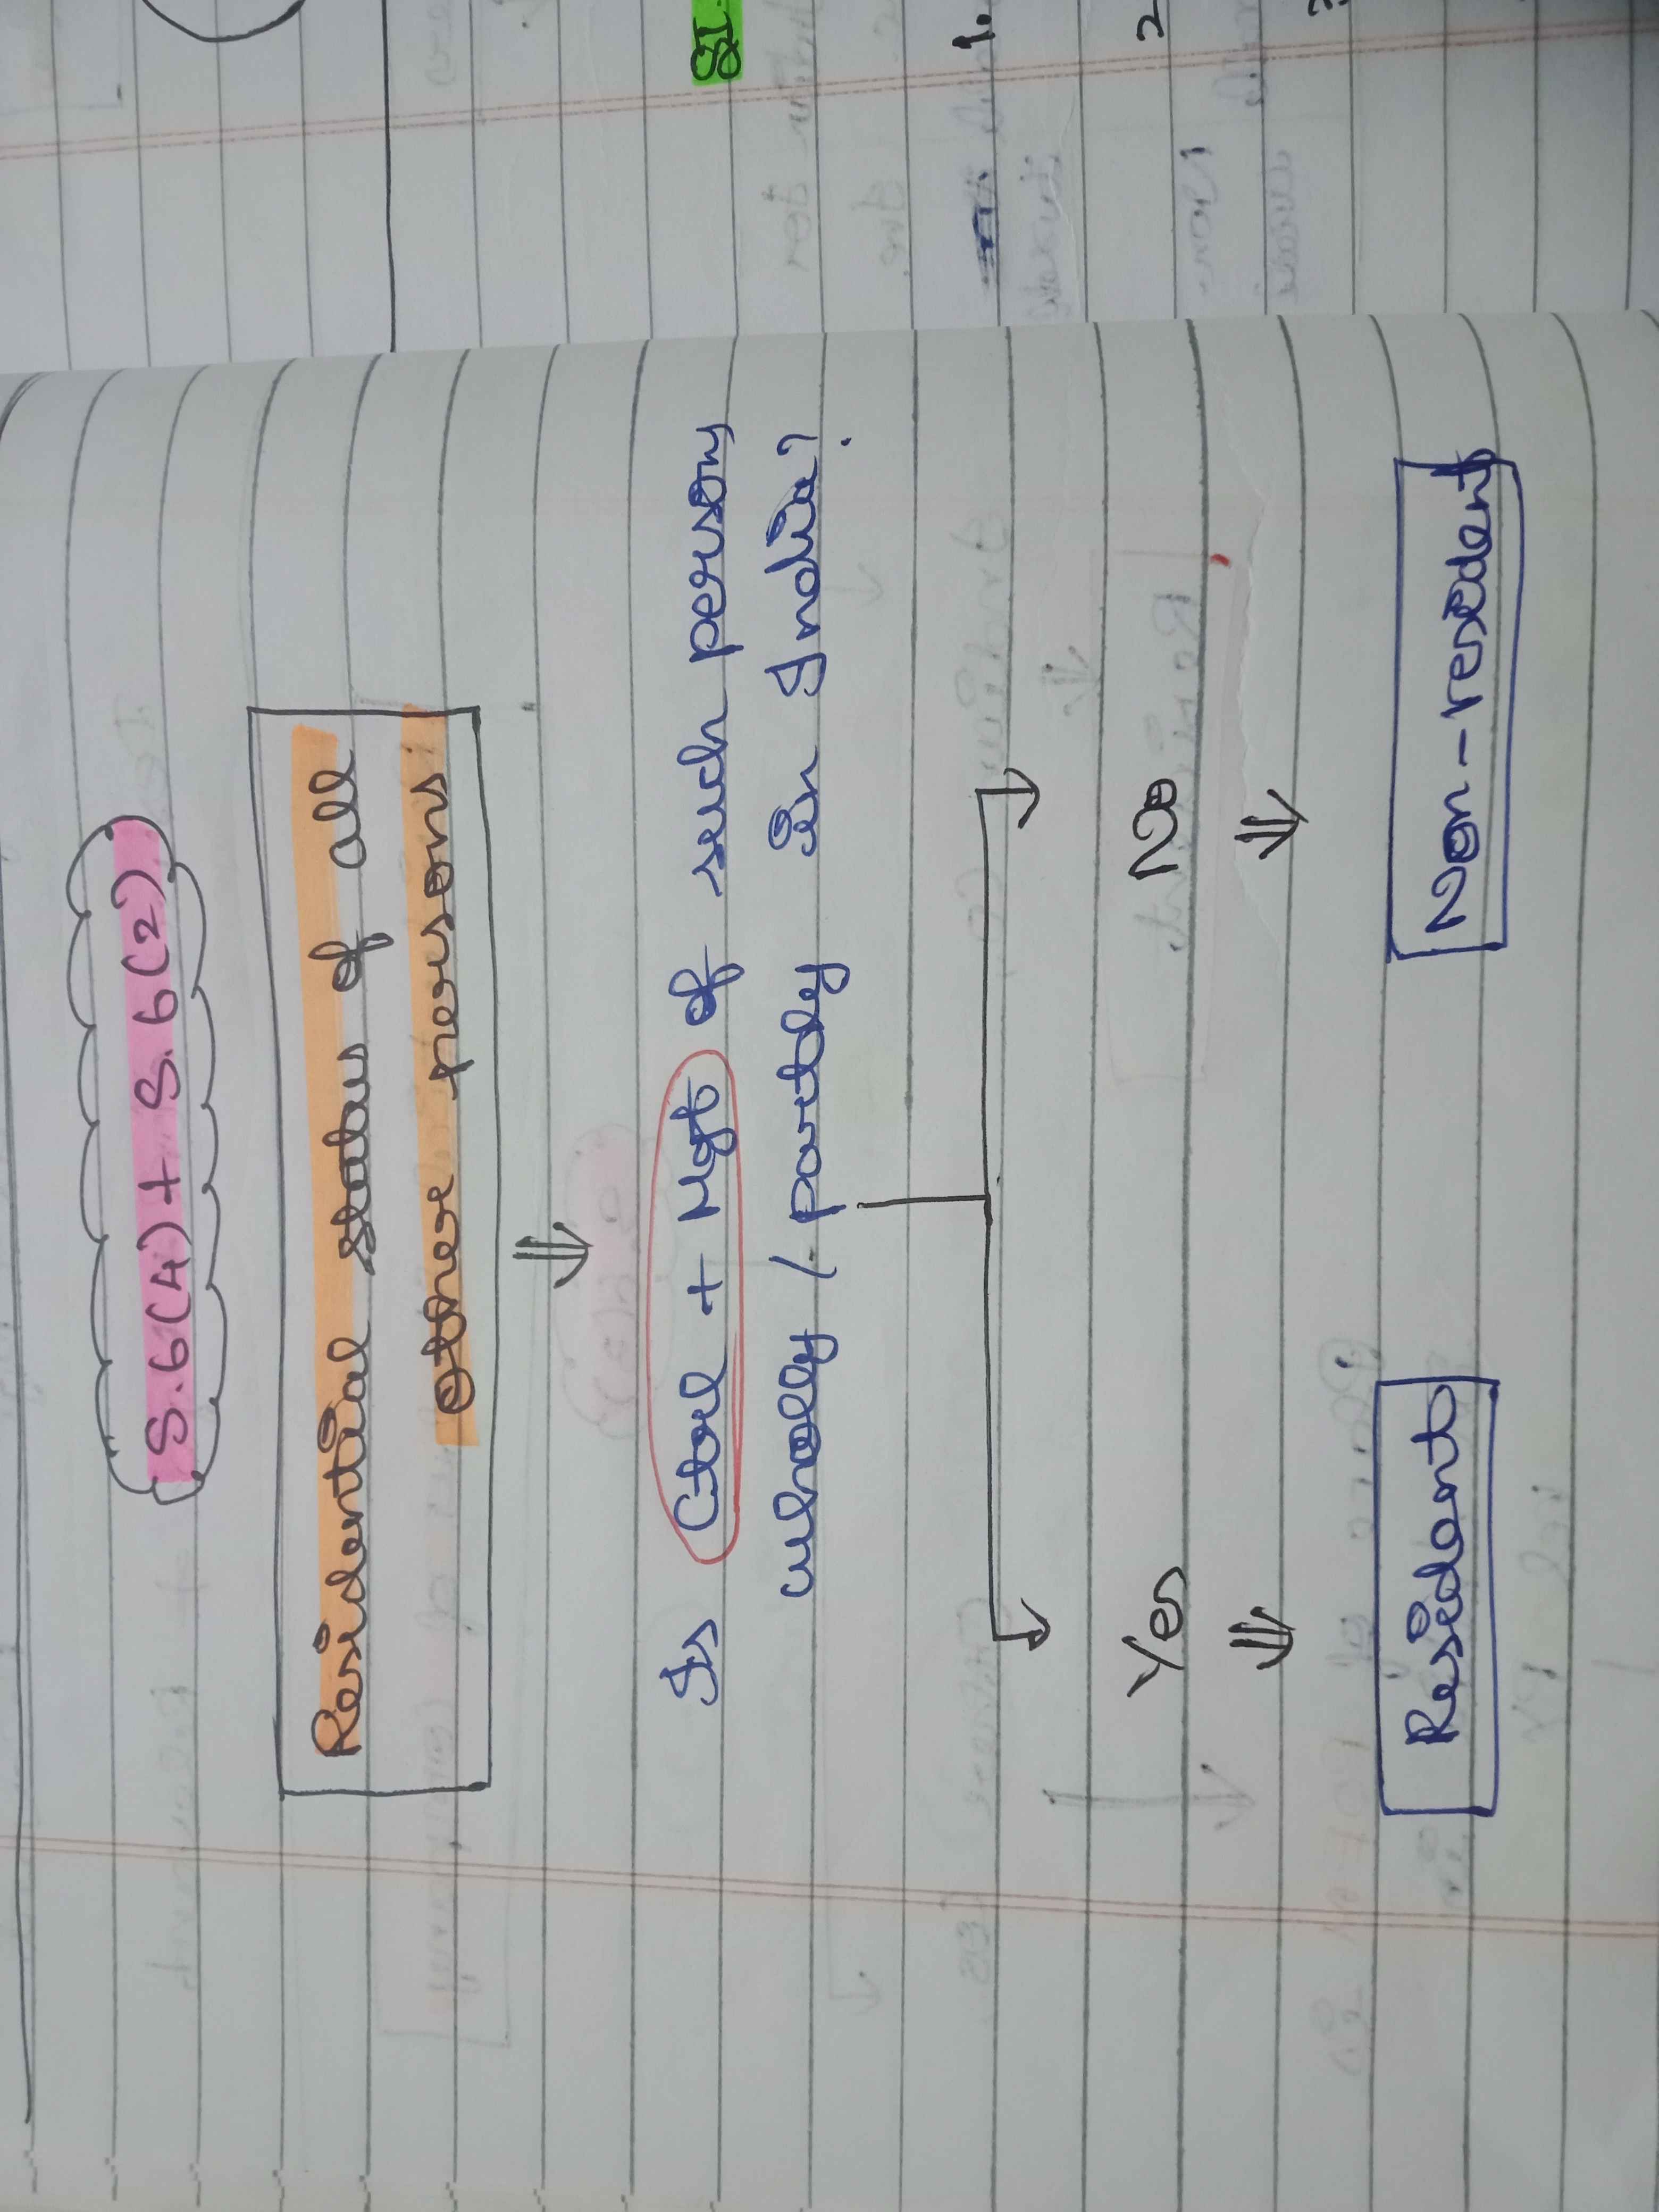 S.6(4) + S.6(2)
Residential status of all
other persons
Is Ctrl + Mgt of such person
wholly / partly in India?
Yes
No
Resident
Non-resident
1.
2